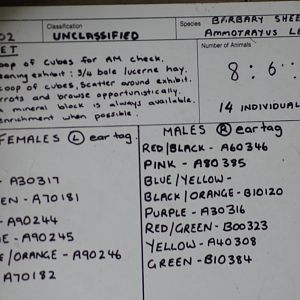 02
Classification
UNCLASSIFIED
Species
BARBARY SHEE
AMMOTRAGUS LE
ET
oop of cubes for AM check.
eaning exhibit: 3/4 bale lucerne hay.
coop of cubes, Scatter around exhibit.
rrots and browse opportunistically.
mineral block is always available.
enrichment when possible.
Number of Animals
8:6
14 INDIVIDUAL
FEMALES (L) ear tag.
- A30317
EEN - A70181
- A90244
E - A90245
E/ORANGE - A90246
A70182
MALES (R) ear tag
RED/BLACK - A60346
PINK - A80385
BLUE/YELLOW -
BLACK/ORANGE - B10120
PURPLE - A30316
RED/GREEN - B00323
YELLOW - A40308
GREEN - B10384